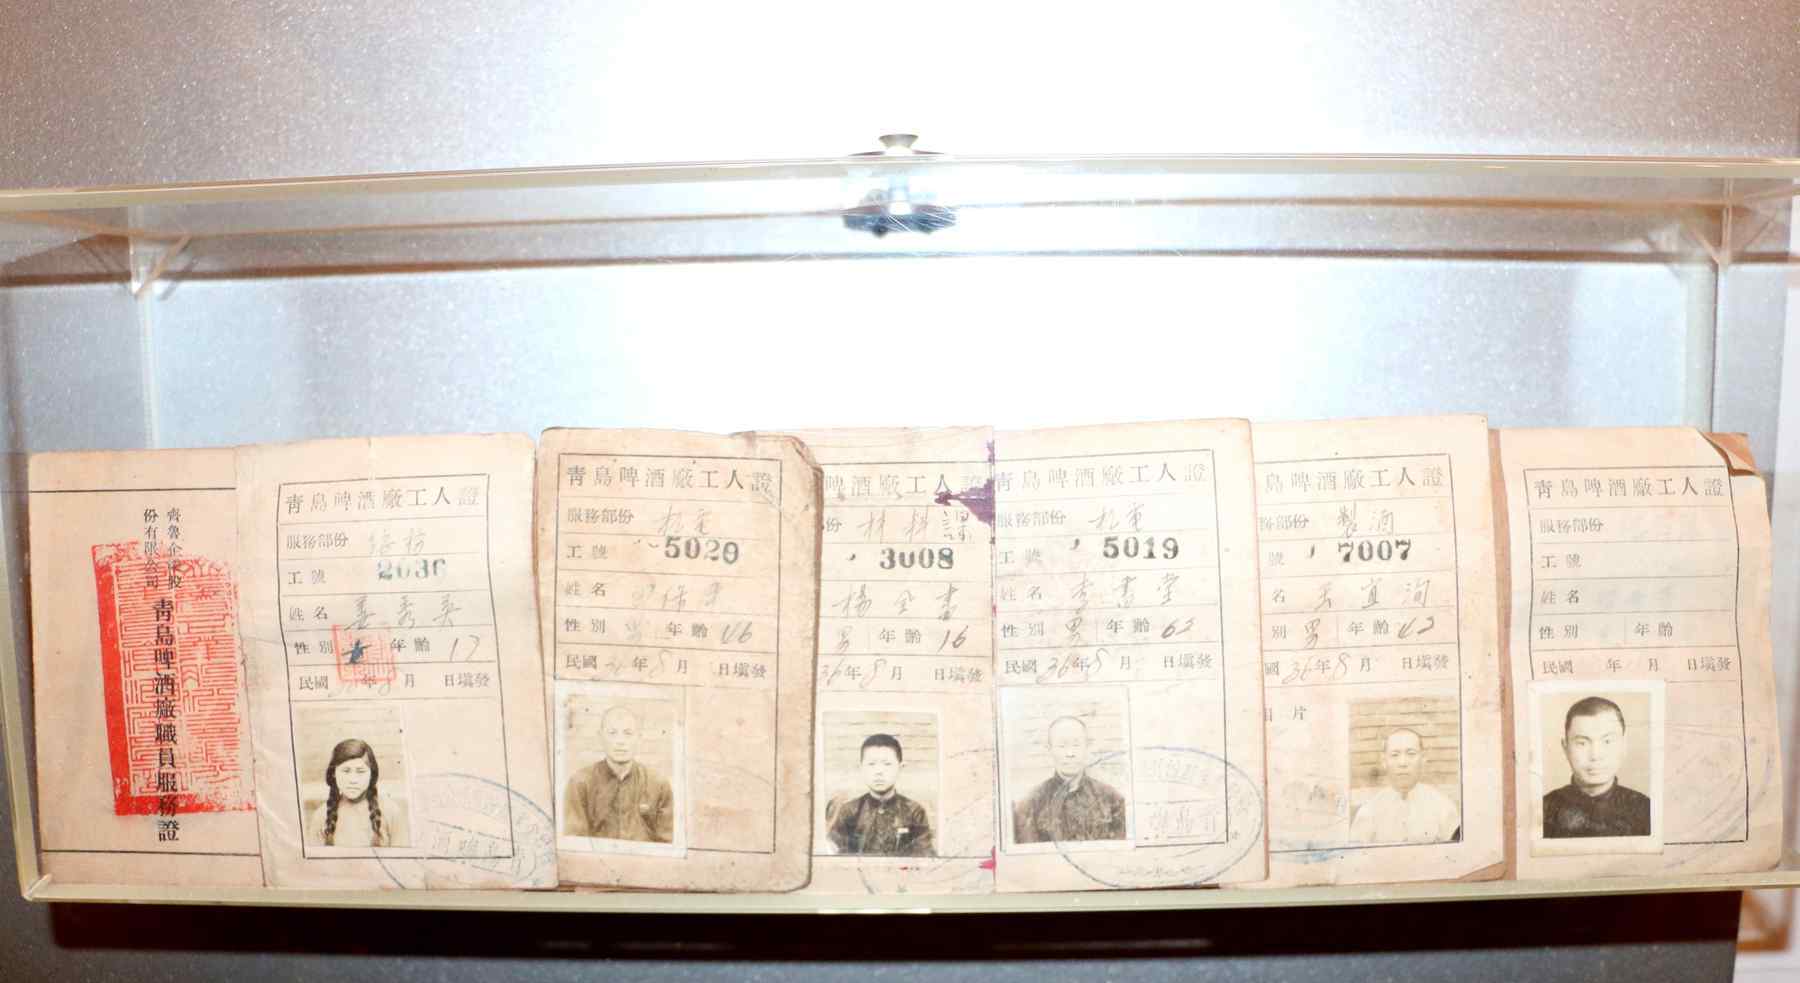 齊魯企業股
份有限公司
青島啤酒廠職員服務證
青島啤酒廠工人證
服務部份
工號 2036
姓名 姜秀英
性別 女 年齡 17
民國 年8月 日塡發
青島啤酒廠工人證
服務部份 机電
工號 5029
姓名
性別 男 年齡 46
民國36年8月 日塡發
啤酒廠工人證
份 材料課
3008
楊
男 年齡 16
36年8月 日塡發
青島啤酒廠工人證
服務部份 机電
工號 5019
姓名 李書堂
性別 男 年齡 62
民國36年8月 日塡發
島啤酒廠工人證
務部份 製酒
號 7007
名 王宜洵
別 男 年齡 42
國36年8月 日塡發
片
青島啤酒廠工人證
服務部份
工號
姓名
性別 年齡
民國 年 月 日塡發